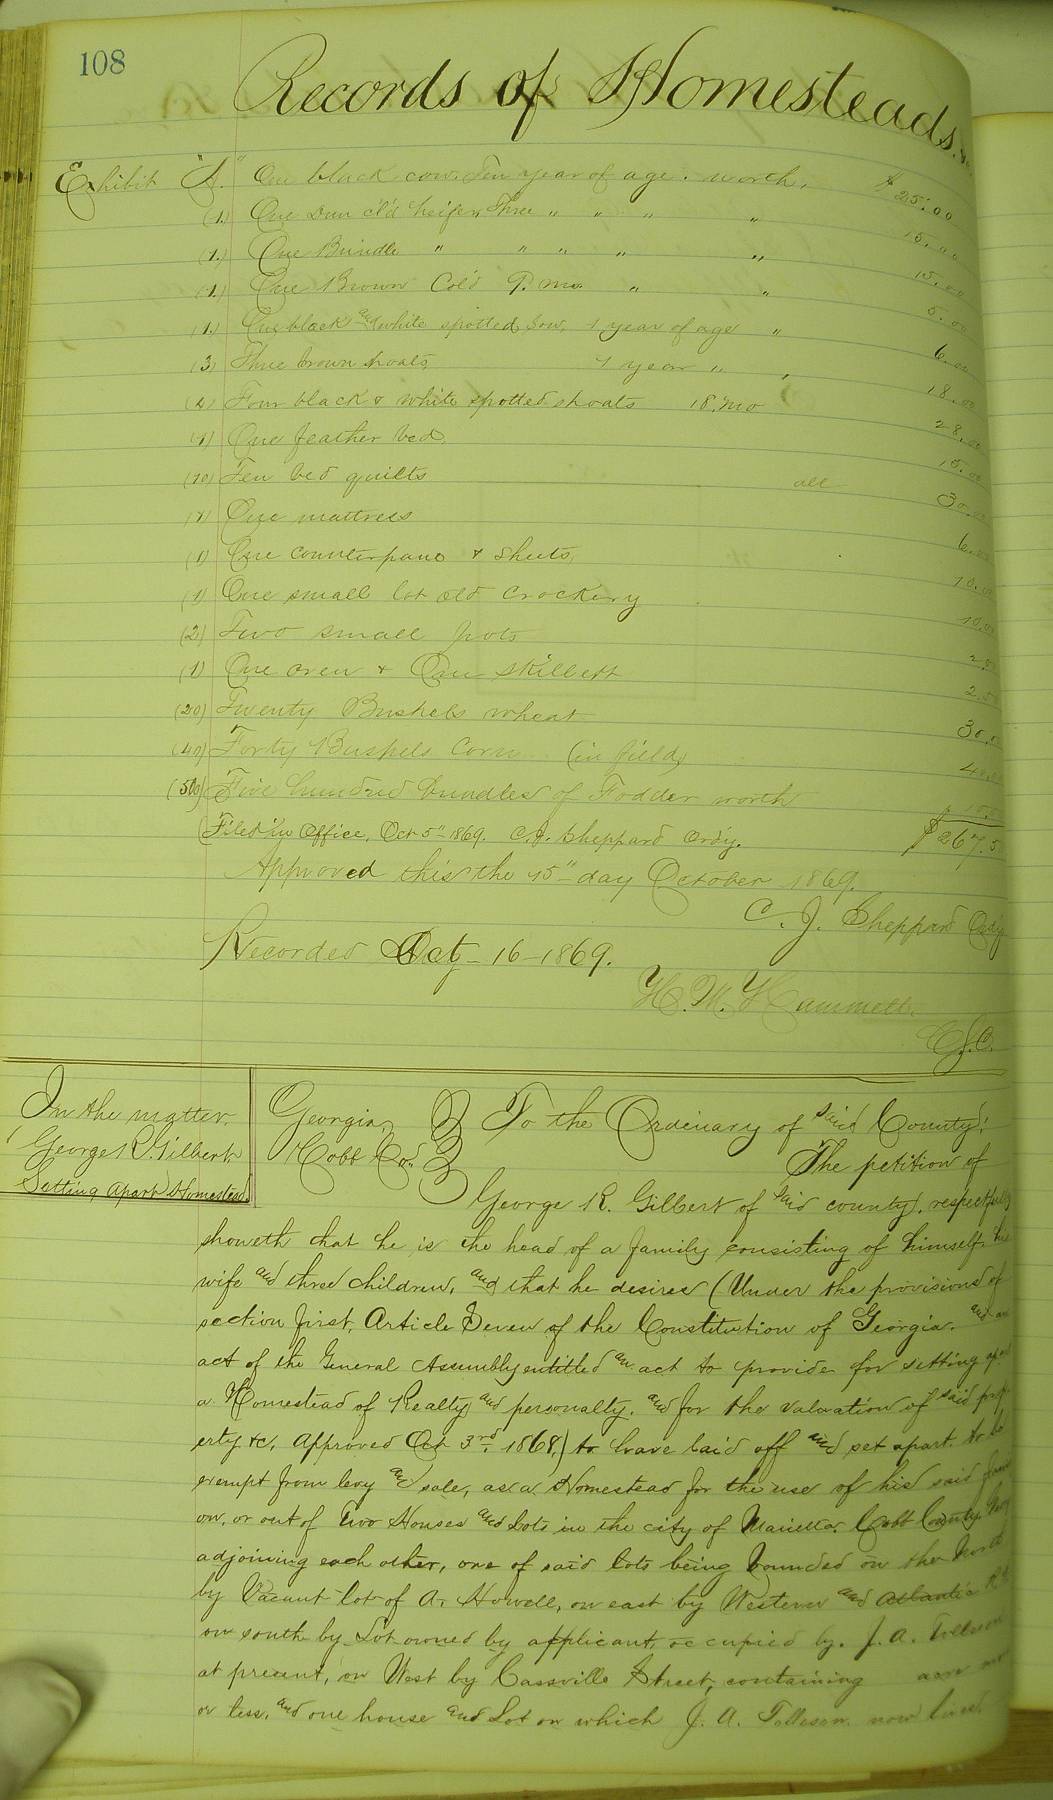 108
Records of Homesteads.
Exhibit "A." One black cow Ten year of age. worth, $25.00
(1.) One Dun cl'd heifer Three " " " " 15.00
(1.) One Brindle " " " " " 15.00
(1.) One Brown Col'd 9. mo. " " 5.00
(1.) One black and white spotted Sow, 1 year of age " 6.00
(3) Three brown shoats, 1 year " , 18.00
(4) Four black & white spotted shoats 18. mo 28.00
(1) One feather bed. 15.00
(10) Ten bed quilts all 30.00
(1) One mattress 6.00
(1) One counterpane & sheets, 10.00
(1) One small lot old crockery 10.00
(2) Two small pots 2.
(1) One oven & One skillett 2.50
(20) Twenty Bushels wheat 30.
(40) Forty Bushels Corn (in field) 40.00
(500) Five hundred bundles of Fodder worth 10.
(Filed in Office, Oct 5" 1869. C.J. Sheppard Ord'y. $267.5
Approved this the 15" day October 1869.
C. J. Sheppard Ord'y
Recorded Oct - 16 - 1869.
H. M. Hammett.
C.S.C.
In the matter.
George R. Gilbert
Setting apart Homestead.
Georgia, To the Ordinary of said County:
Cobb Co. The petition of
George R. Gilbert of said county, respectfully
showeth that he is the head of a family consisting of himself, his
wife and three children, and that he desires (Under the provisions of
section first, Article Seven of the Constitution of Georgia. and an
act of the General Assembly entitled an act to provide for setting apart
a Homestead of Realty and personalty. and for the valuation of said prop
erty &c, approved Oct 3rd 1868,) to have laid off and set apart. to be
exempt from levy and sale, as a Homestead for the use of his said fam
on, or out of Two Houses and Lots in the city of Marietta. Cobb County,
adjoining each other, one of said lots being bounded on the North
by Vacant lot of A. Howell, on east by Western and Atlantic R.R
on south by Lot owned by applicant, occupied by. J. A. Tolleson
at present, on West by Cassville Street, containing more
or less, and one house and Lot on which J. A. Tolleson now lives.